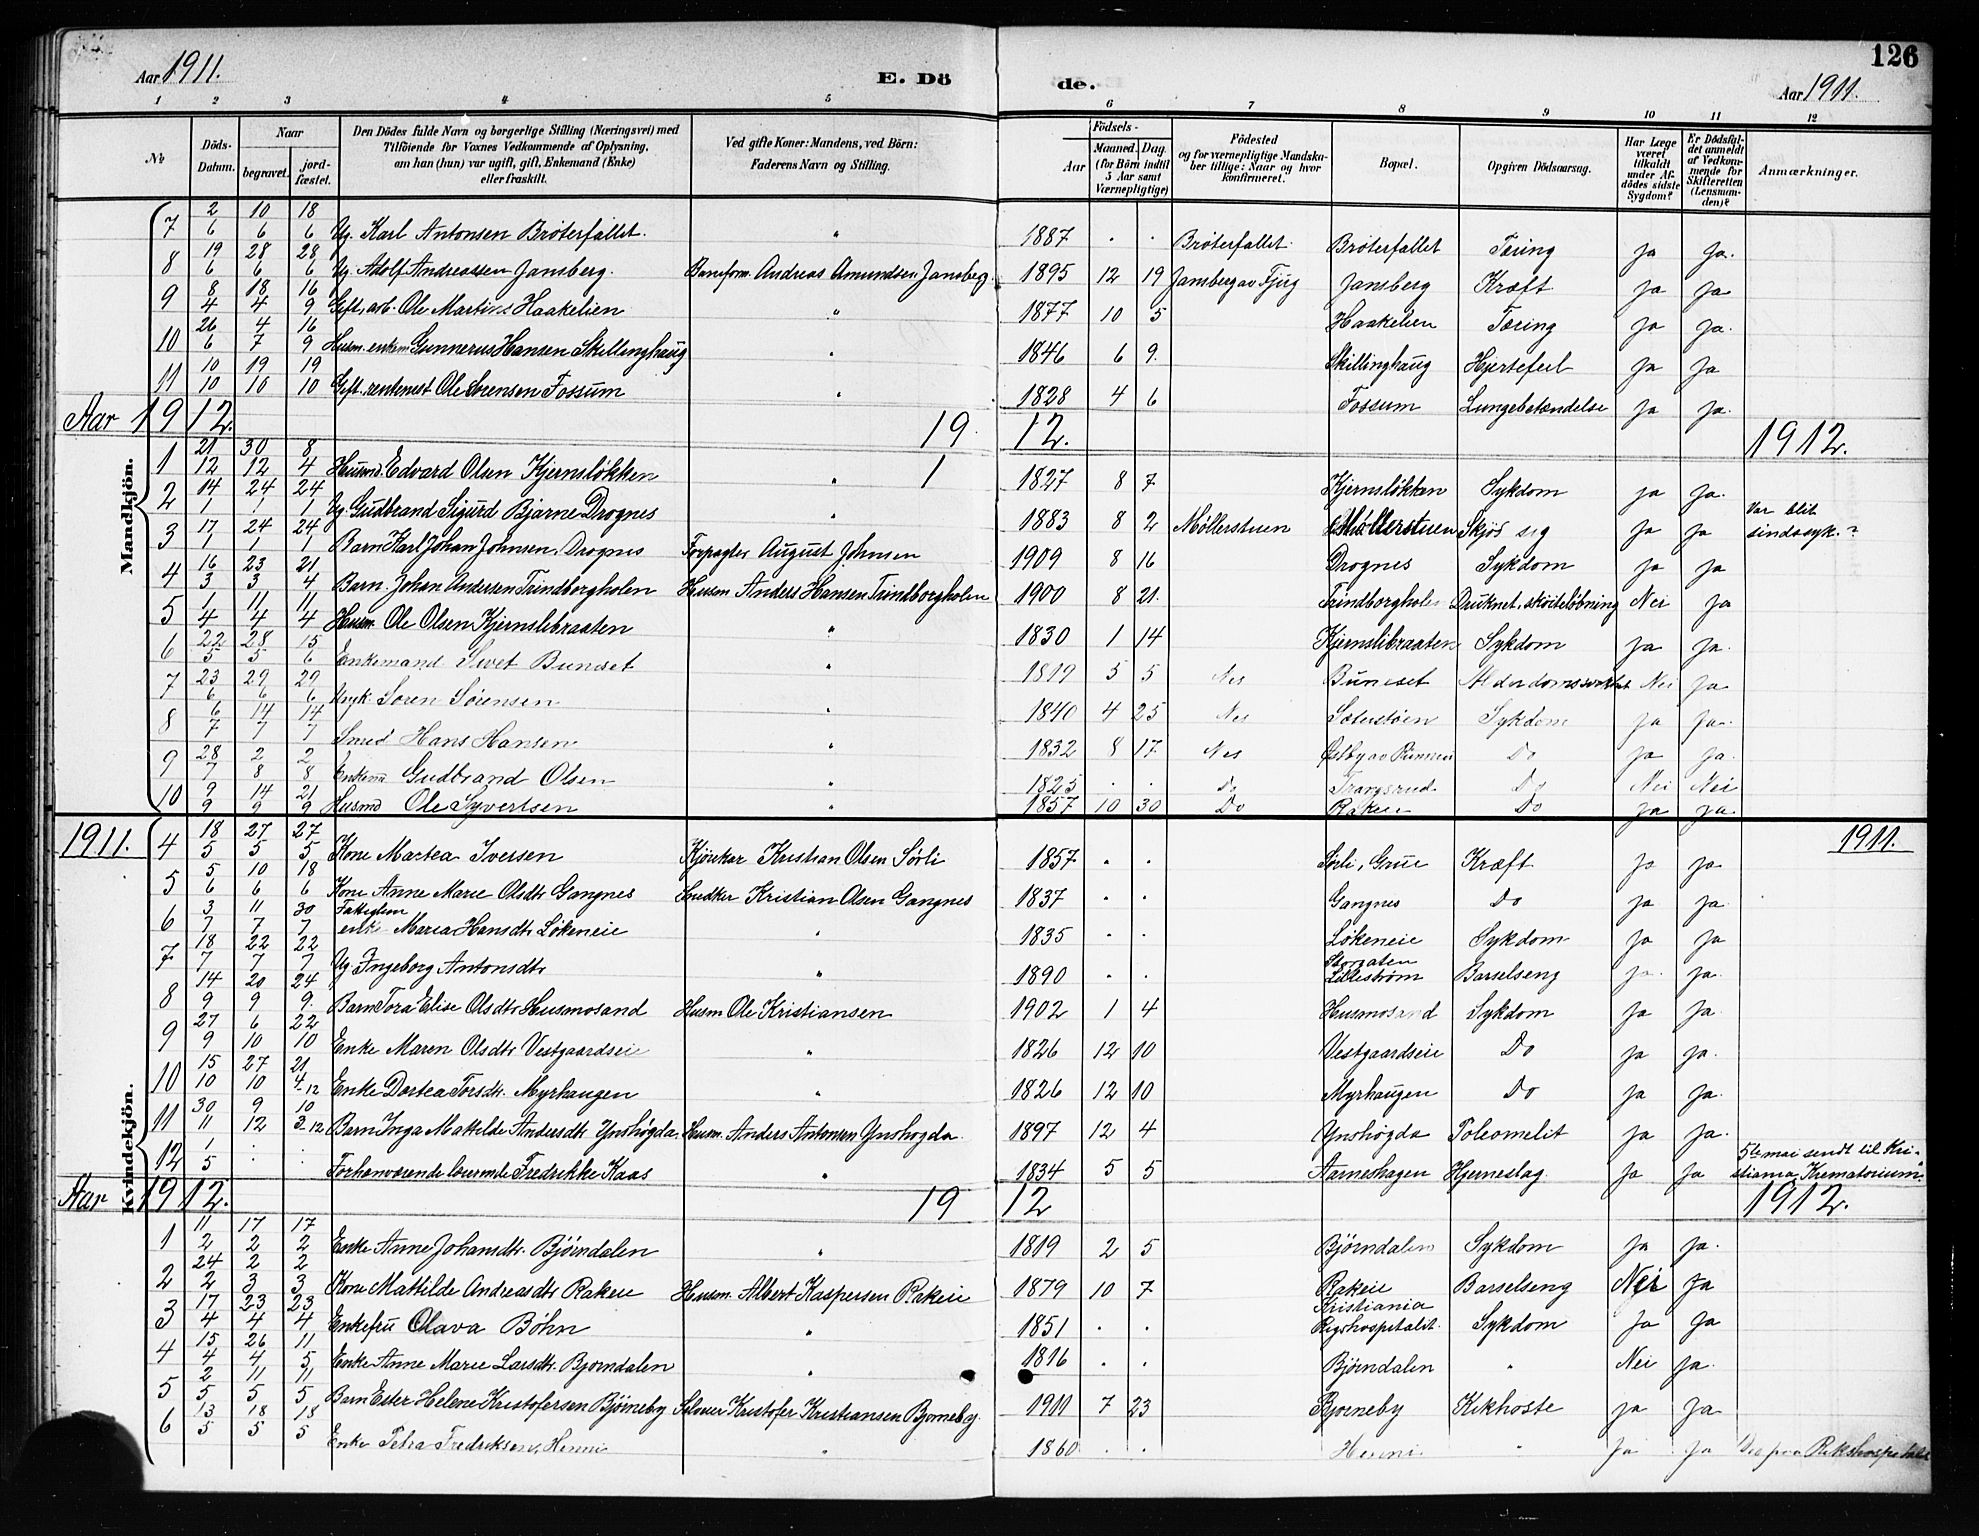 126
Aar 1911. E. Dö de. Aar 1911.
1 2 3 4 5 6 7 8 9 10 11 12
№ Döds-Datum. Naar begravet. jord-fæstet. Den Dödes fulde Navn og borgerlige Stilling (Næringsvei) med Tilföiende for Voxnes Vedkommende af Oplysning, om han (hun) var ugift, gift, Enkemand (Enke) eller fraskilt. Ved gifte Koner: Mandens, ved Börn: Faderens Navn og Stilling. Födsels- Aar Maaned. Dag. (for Börn indtil 5 Aar samt Værnepligtige) Födested og for værnepligtige Mandska-ber tillige: Naar og hvor konfirmeret. Bopæl. Opgiven Dödsaarsag. Har Læge været tilkaldt under Af-dödes sidste Sygdom? Er Dödsfal-det anmeldt af Vedkom-mende for Skifteretten (Lensman-den)? Anmærkninger.
Mandkjön.
7 2/6 10/6 18/6 Ug. Karl Antonsen Bröterfallet. " 1887 . . Bröterfallet. Bröterfallet Tæring ja ja.
8 19/6 28/6 28/6 Ug. Adolf Andreassen Jansberg. Barneform. Andreas Amundsen Jansberg. 1895 12 19 Jansberg av Fjug Jansberg Kræft ja ja
9 8/4 18/4 16/9 Gift, arb. Ole Martins Haakelien " 1877 10 5 Haakelien Tæring ja ja.
10 26/6 4/7 16/9 Husm. enkem Gunnerus Hansen Skillinghaug " 1846 6 9. Skillinghaug Hjertefeil ja ja
11 10/10 19/10 19/10 Gift, rentenist Ole Sørensen Fossum " 1828 4 6 Fossum Lungebetændelse ja ja.
Aar 1912. 1912. 1912.
1 21/12 30/12 8/4 Husmd. Edvard Olsen Kjernsløkken " 1 1827 8 7 Kjernsløkken Sykdom ja ja.
2 14/1 24/1 24/1 Ug. Gudbrand Sigurd Bjarne Drognes " 1883 8 2 Møllerstuen Møllerstuen Skjød sig ja ja Var blit sindssyk.?
3 17/1 24/1 24/1 Barn Karl Johan Johnsen, Drognes Forpagter August Johnsen 1909 8 16 Drognes Sykdom ja ja
4 16/3 23/3 21/4 Barn. Johan Andersen Trindborgholen Husm Anders Hansen Trindborgholen 1900 8 21. Trindborgholen Druknet, skøiteløbning Nei ja
5 1/4 11/4 11/4 Husm. Ole Olsen Kjernslibraaten " 1830 1 14 Kjernslibraaten Sykdom ja ja.
6 22/5 28/5 15/6 Enkemand Sivet Bunæset " 1819 5 5 Nes Bunæset Alderdomssvakhet Nei ja
7 23/6 29/6 29/6 Søren Sørensen " 1840 4 25 Nes Sykdom ja ja.
8 6/7 14/7 14/7 Smed Hans Hansen " 1832 8 17. Nes Do ja ja.
9 28/7 2/8 2/8 Enkem Gudbrand Olsen " 1825 . . Do Do Nei Nei
10 9/9 14/9 21/9 Husmd Ole Syvertsen " 1857 10 30 Do Rakeie Do ja ja.
1911. 1911.
Kvindekjön.
4 18/5 27/5 27/5 Kone Martea Iversen Kjørekar Kristian Olsen Sörli 1857 . . Sørli, Grue Kræft ja ja
5 5/6 10/6 18/6 Kone Anne Marie Olsdtr Gangnes Snedker Kristian Olsen Gangnes 1837 . . Gangnes Do ja ja
6 3/7 11/7 30/7 Fattiglem enke Maria Hansdtr Løkeneie " 1835 . . Løkeneie Sykdom ja ja
7 18/7 22/7 22/7 Ug. Ingeborg Antonsdtr " 1890 . . Storgaten Lillestrøm Barselseng ja. ja.
8 14/9 20/9 24/9. Barn Tora Elise Olsdtr Husmosand Husm Ole Kristiansen 1902 1 4 Husmosand Sykdom ja ja.
9 27/9 6/10 22/10 Enke Maren Olsdtr Vestgaardseie " 1826 12 10 Vestgaardseie Do ja ja.
10 15/10 27/10 21/4-12 Enke Dortea Torsdtr. Myrhaugen " 1826 12 10 Myrhaugen Do ja ja.
11 30/11 9/12 10/3-12 Barn Inga Matilde Andersdtr Ynshøgda. Husm. Anders Antonsen Ynshøgda 1897 12 4 Ynshøgda Poleomelit ja ja.
12 1/5 : : Forhenværende lærerinde Fredrikke Kaas " 1834 5 5 Aarneshagen Hjerneslag ja ja 5te mai sendt til Kristiania Krematorium.
Aar 1912. 1912 1912.
1 11/2 17/2 17/2 Enke Anne Johansdtr. Bjørndalen " 1819 2 5 Bjørndalen Sykdom ja ja.
2 24/2 2/3 2/3 Kone Mathilde Andreasdtr Rakeie Husm. Albert Kaspersen Rakeie 1879 10 7 Rakeie Barselseng Nei ja
3 17/4 23/4 23/4 Enkefru Olava Bøhn " 1851 . . Kristiania Rigshospitalet. Sykdom ja ja
4 15/4 26/4 11/5 Enke Anne Marie Larsdtr. Bjørndalen " 1816 . . Bjørndalen " Nei ja.
5 2/5 11/5 11/5 Barn Ester Helene Kristofersen Bjørneby Seloeier Kristofer Kristiansen Bjørneby. 1911 7 23 Bjørneby Kikhoste ja ja
6 13/5 18/5 18/5 Enke Petra Fredriksen, Henni " 1860 . . Henni " ja ja Død paa Rikshospitalet